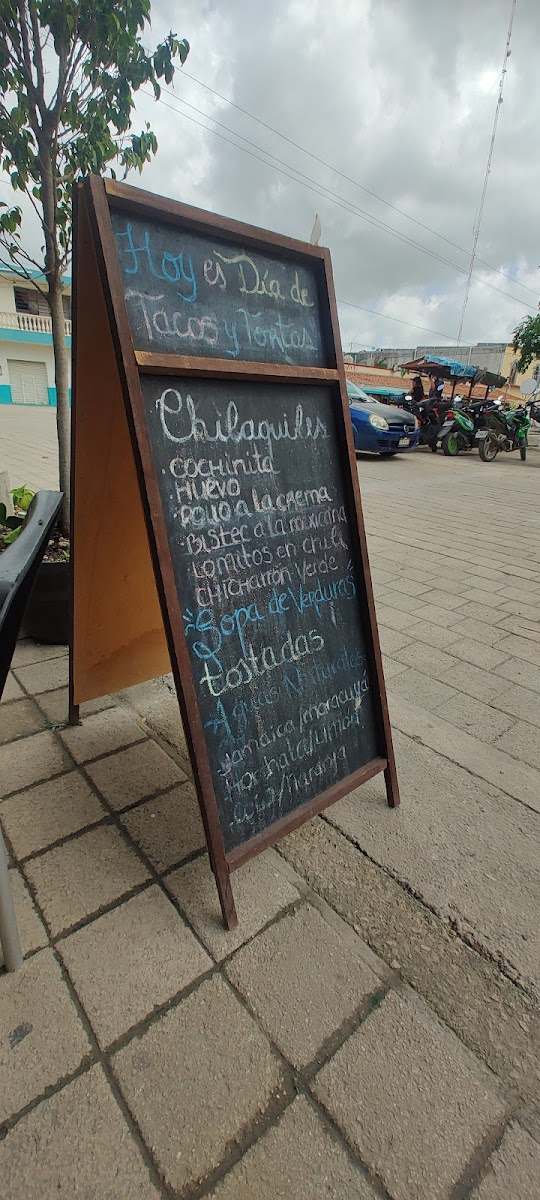 Hoy es Día de
Tacos y Tortas
Chilaquiles
. COCHINITA
. HUEVO
. POLLO A LA CREMA
. BISTEC A LA MEXICANA
LOMITOS EN CHILE
CHICHARRÓN VERDE
Sopa de Verduras
tostadas
Aguas Naturales
Jamaica/maracuya
Horchata/Limón
/naranja